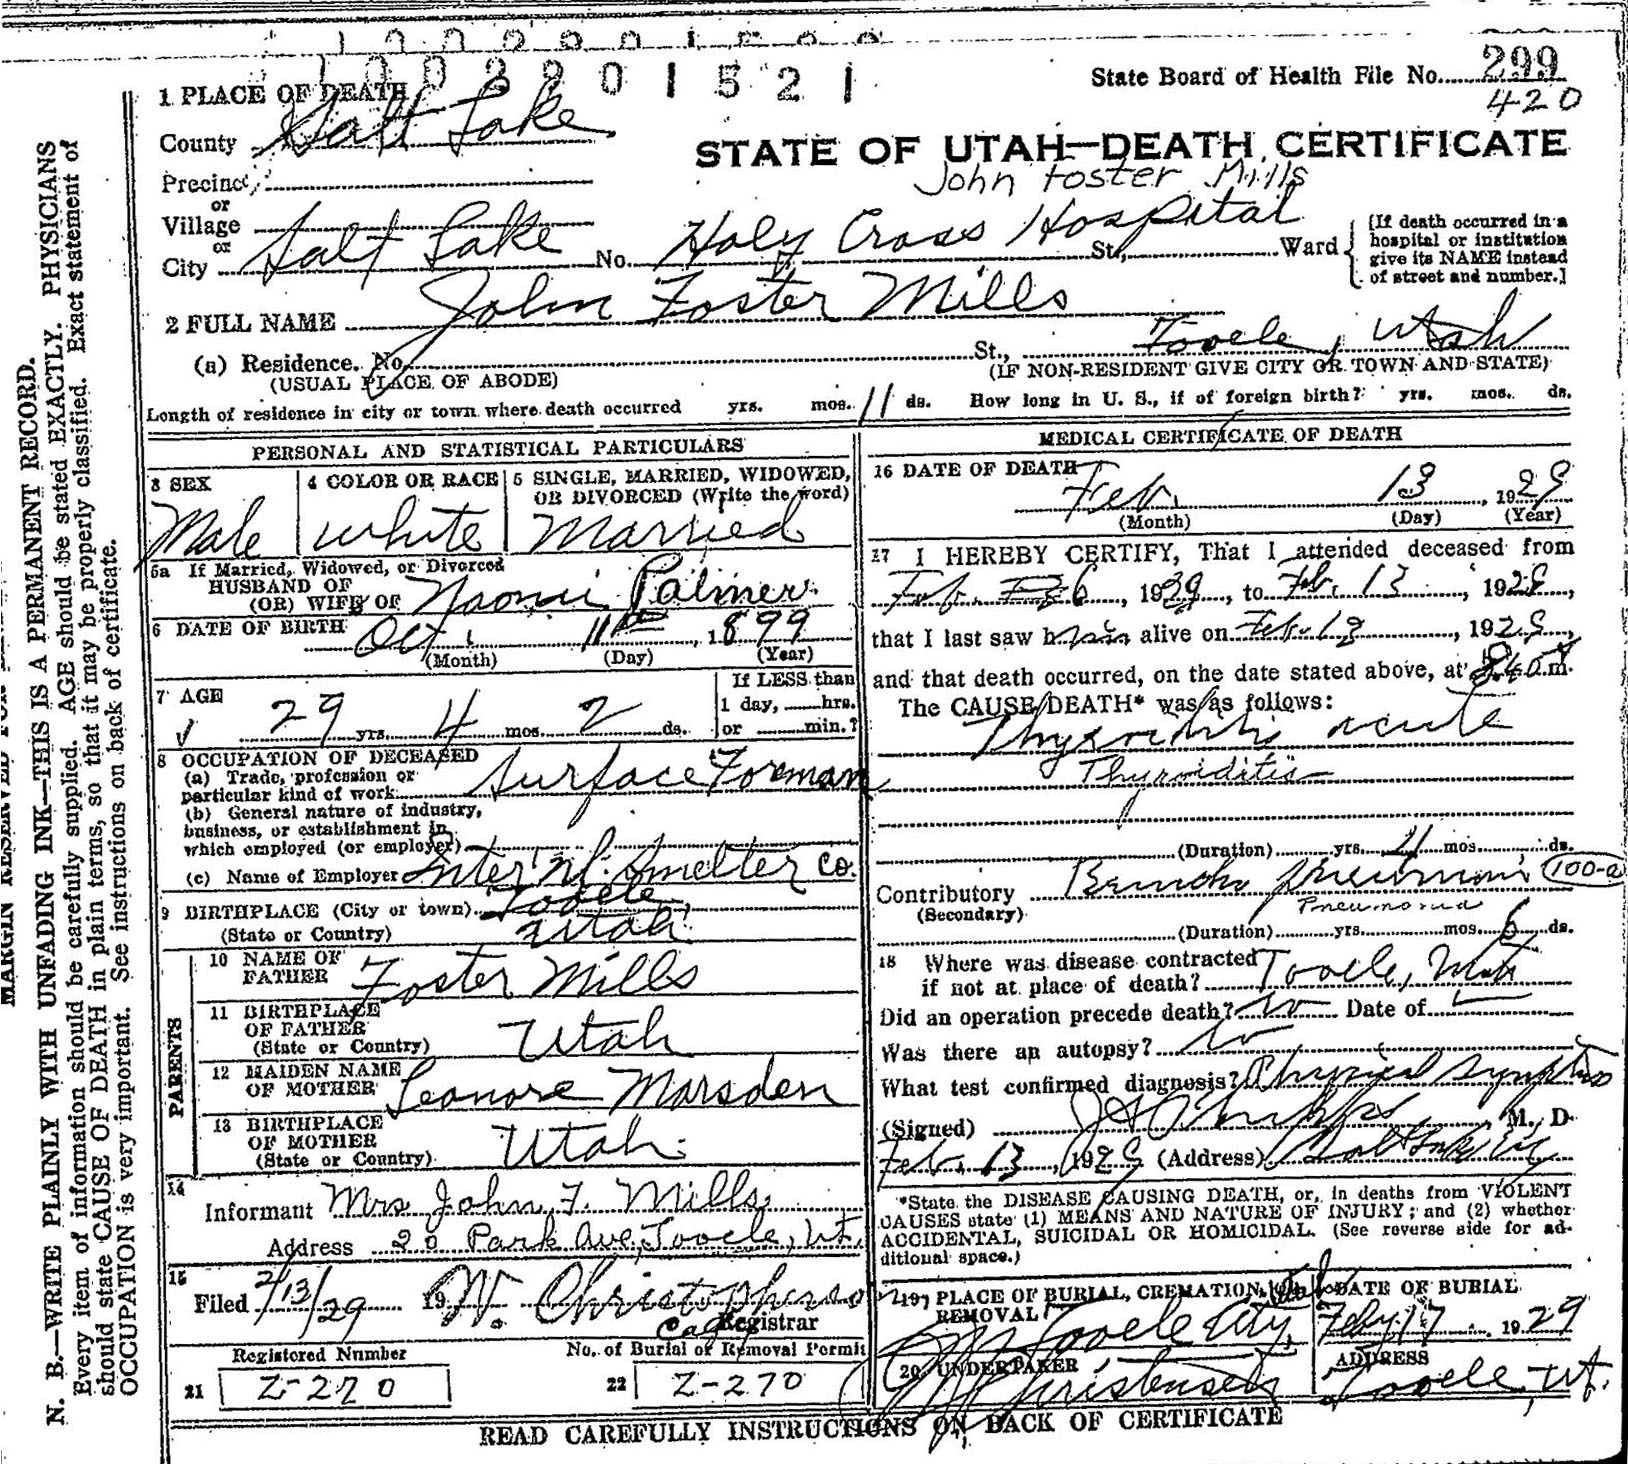 1002901521
State Board of Health File No. 299
420
1 PLACE OF DEATH
County Salt Lake
STATE OF UTAH—DEATH CERTIFICATE
John Foster Mills
Precinct
or
Village
or
City Salt Lake No. Holy Cross Hospital St., Ward
[If death occurred in a
hospital or institution
give its NAME instead
of street and number.]
2 FULL NAME John Foster Mills
(a) Residence. No. St., Tooele, Utah
(USUAL PLACE OF ABODE) (IF NON-RESIDENT GIVE CITY OR TOWN AND STATE)
Length of residence in city or town where death occurred yrs. mos. 11 ds. How long in U. S., if of foreign birth? yrs. mos. ds.
PERSONAL AND STATISTICAL PARTICULARS
3 SEX
Male
4 COLOR OR RACE
white
5 SINGLE, MARRIED, WIDOWED,
OR DIVORCED (Write the word)
Married
5a If Married, Widowed, or Divorced
HUSBAND OF
(OR) WIFE OF Naomi Palmer
6 DATE OF BIRTH Oct. 11th, 1899
(Month) (Day) (Year)
7 AGE
29 yrs. 4 mos. 2 ds.
If LESS than
1 day, hrs.
or min.?
8 OCCUPATION OF DECEASED
(a) Trade, profession or
particular kind of work Surface Forman
(b) General nature of industry,
business, or establishment in
which employed (or employer)
(c) Name of Employer Inter'nl. Smelter Co.
9 BIRTHPLACE (City or town) Tooele,
(State or Country) Utah
PARENTS
10 NAME OF
FATHER Foster Mills
11 BIRTHPLACE
OF FATHER
(State or Country) Utah
12 MAIDEN NAME
OF MOTHER Leonore Marsden
13 BIRTHPLACE
OF MOTHER
(State or Country) Utah.
14
Informant Mrs John F. Mills
Address 20 Park Ave, Tooele, Ut.
15
Filed 2/13/29 19 W. Christopherson
Registrar
Registered Number
21 Z-270
No. of Burial or Removal Permit
22 Z-270
MEDICAL CERTIFICATE OF DEATH
16 DATE OF DEATH
Feb. 13, 1929
(Month) (Day) (Year)
17 I HEREBY CERTIFY, That I attended deceased from
Feb. 6, 1929, to Feb. 13, 1929,
that I last saw him alive on Feb. 13, 1929,
and that death occurred, on the date stated above, at m.
The CAUSE DEATH* was as follows:
Thyroiditis acute
Thyroiditis
(Duration) yrs. mos. ds.
Contributory Broncho pneumonia 100-a
(Secondary) Pneumonia
(Duration) yrs. mos. 6 ds.
18 Where was disease contracted
if not at place of death? Tooele, Utah
Did an operation precede death? no Date of
Was there an autopsy? no
What test confirmed diagnosis? Physical Symptoms
(Signed) M. D.
Feb. 13, 1929 (Address) Salt Lake City
*State the DISEASE CAUSING DEATH, or, in deaths from VIOLENT
CAUSES state (1) MEANS AND NATURE OF INJURY; and (2) whether
ACCIDENTAL, SUICIDAL OR HOMICIDAL. (See reverse side for ad-
ditional space.)
19 PLACE OF BURIAL, CREMATION, OR
REMOVAL
Tooele City
DATE OF BURIAL
Feby. 17, 1929
20 UNDERTAKER
Christensen
ADDRESS
Tooele, Ut.
READ CAREFULLY INSTRUCTIONS ON BACK OF CERTIFICATE
N. B.—WRITE PLAINLY WITH UNFADING INK—THIS IS A PERMANENT RECORD.
Every item of information should be carefully supplied. AGE should be stated EXACTLY. PHYSICIANS
should state CAUSE OF DEATH in plain terms, so that it may be properly classified. Exact statement of
OCCUPATION is very important. See instructions on back of certificate.